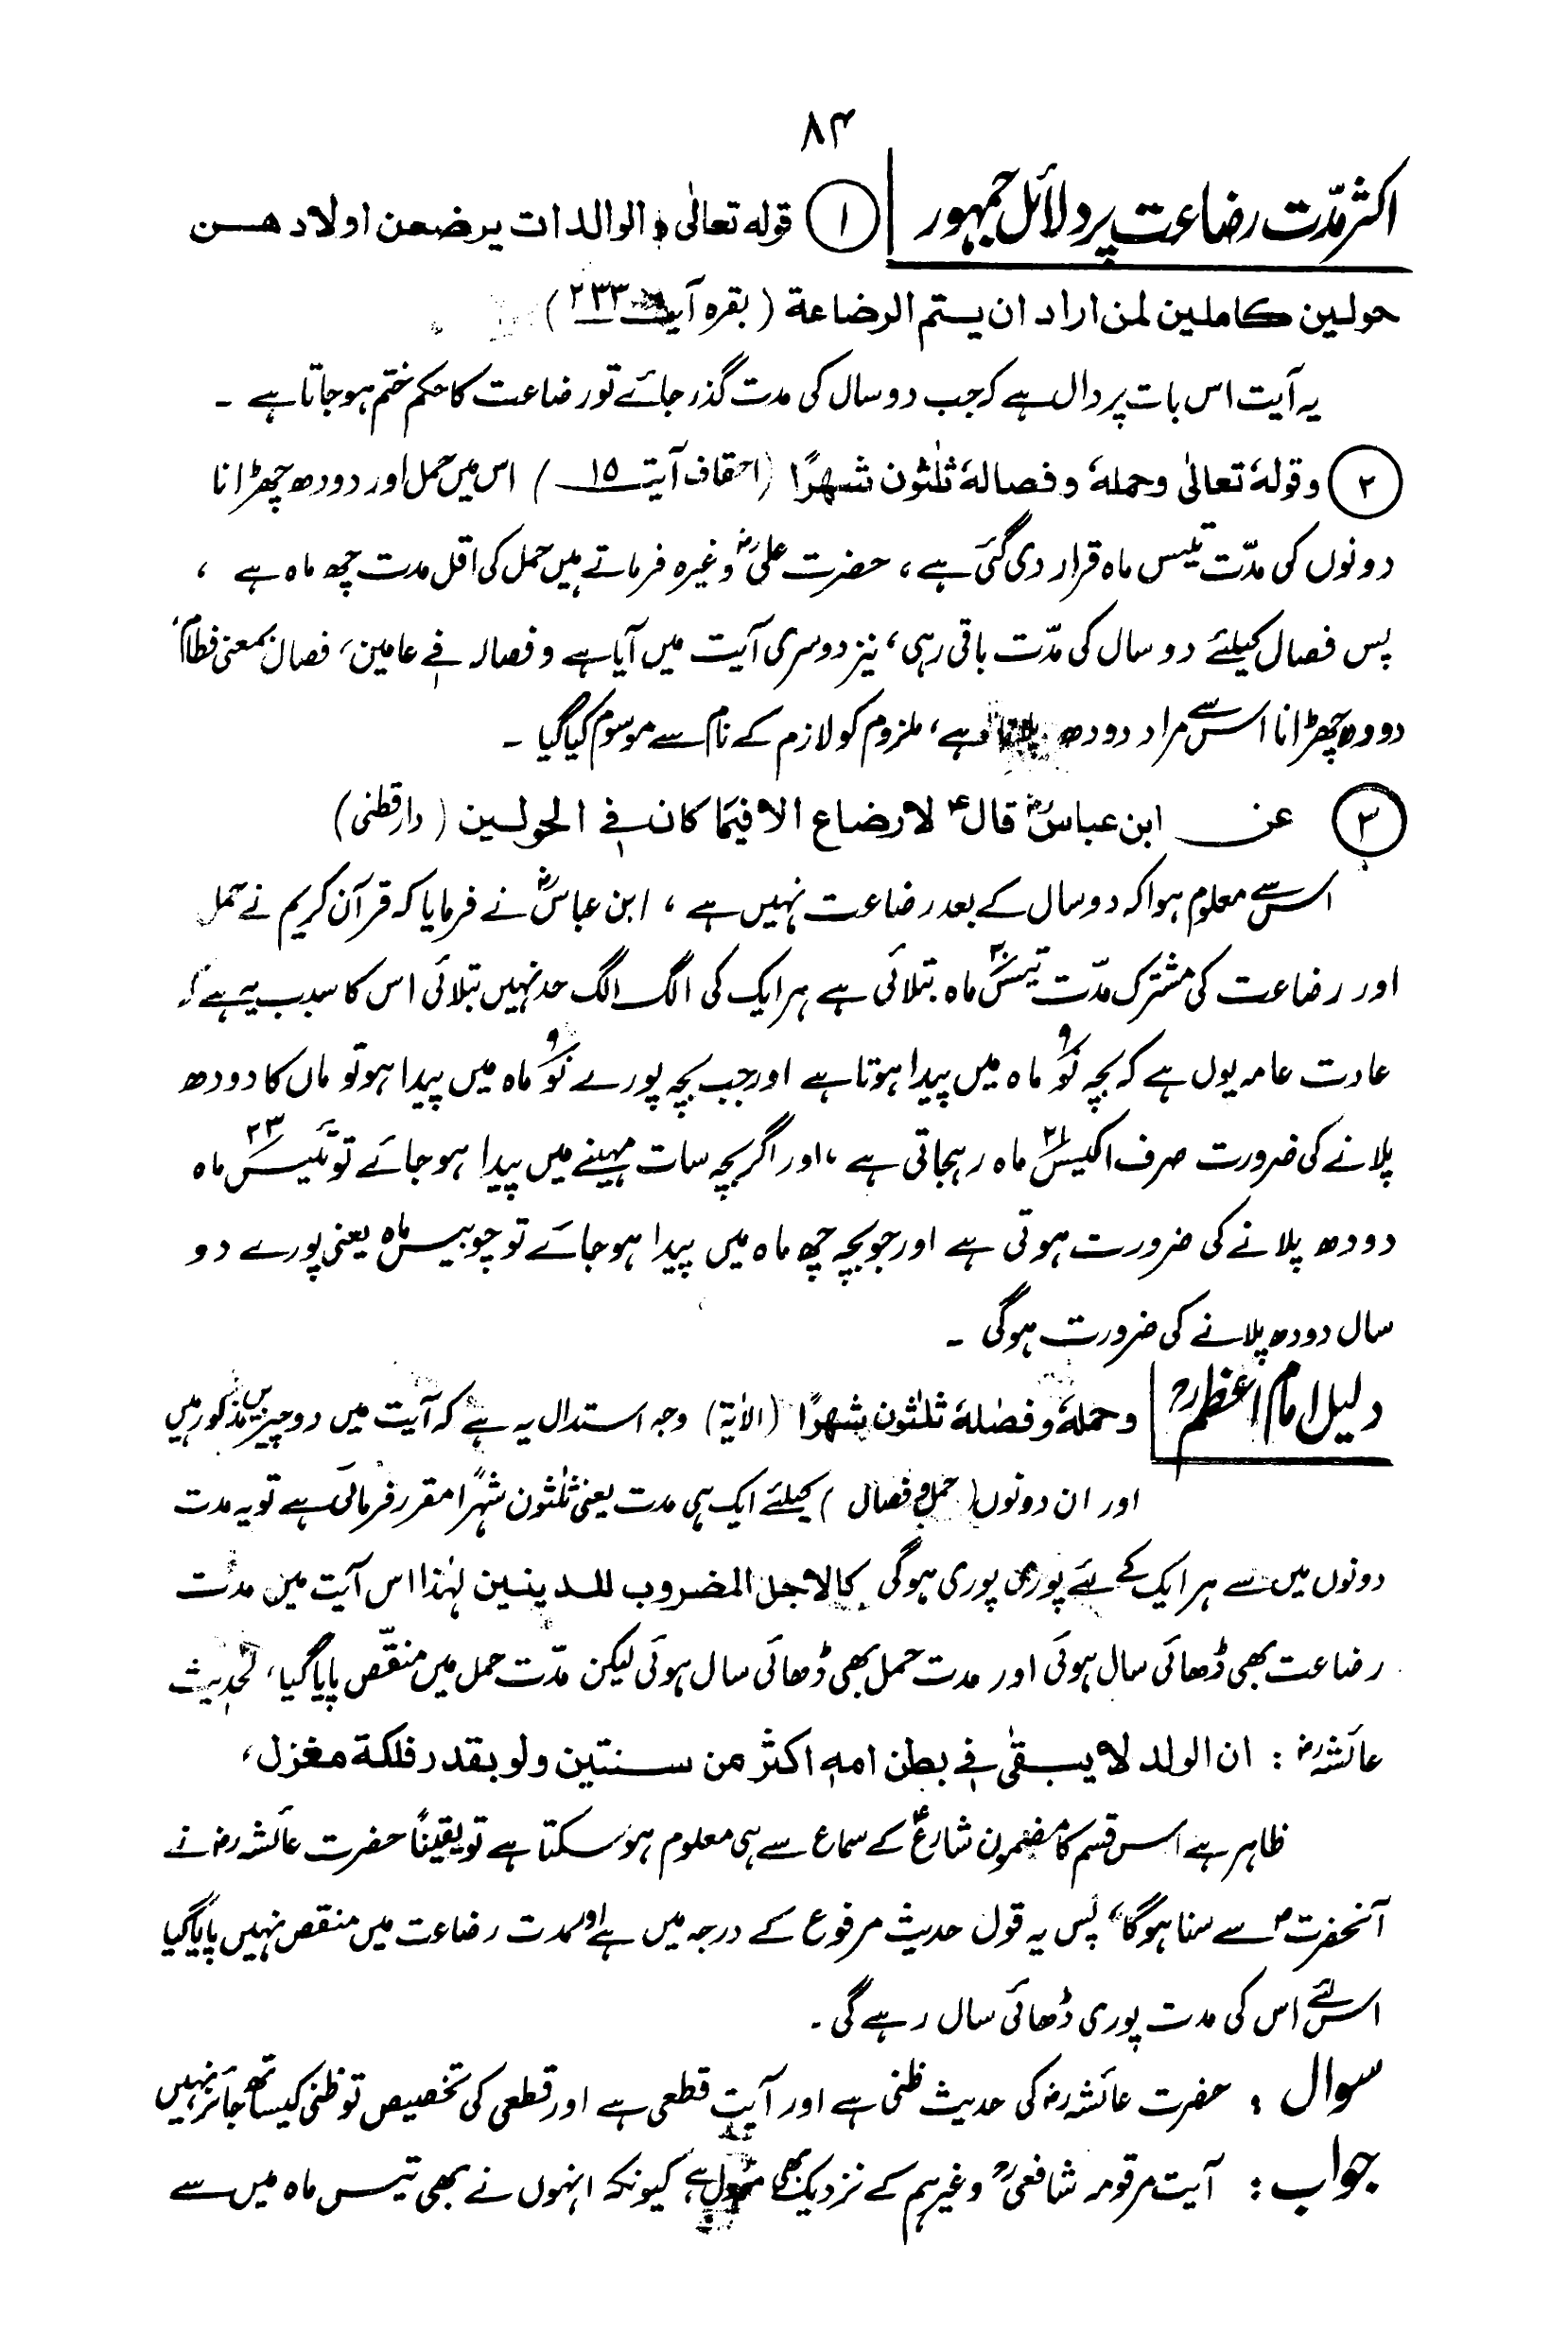 ۸۴
اکثر مدّت رضاعت پر دلائل جمہور ① قوله تعالیٰ والوالدات یرضعن اولادهن
حولین کاملین لمن اراد ان یتم الرضاعة (بقره آیت ۲۳۳)
یہ آیت اس بات پر دال ہے کہ جب دو سال کی مدت گذر جائے تو رضاعت کا حکم ختم ہو جاتا ہے ۔
② وقولهٗ تعالیٰ وحملهٗ وفصالهٗ ثلٰثون شهرًا (احقاف آیت ۱۵) اس میں حمل اور دودھ چھڑانا
دونوں کی مدّت تیس ماہ قرار دی گئی ہے، حضرت علیؓ وغیرہ فرماتے ہیں حمل کی اقل مدت چھ ماہ ہے ،
پس فصال کیلئے دو سال کی مدّت باقی رہی، نیز دوسری آیت میں آیا ہے وفصالہ فی عامین، فصال بمعنی فطام،
دودھ چھڑانا اس سے مراد دودھ پلانا ہے، ملزوم کو لازم کے نام سے موسوم کیا گیا ۔
③ عن ابن عباسؓ قالؑ لا رضاع الا فیما کان فی الحولین (دارقطنی)
اس سے معلوم ہوا کہ دو سال کے بعد رضاعت نہیں ہے ، ابن عباسؓ نے فرمایا کہ قرآن کریم نے حمل
اور رضاعت کی مشترک مدّت تیس۳۰ ماہ بتلائی ہے ہر ایک کی الگ الگ حد نہیں بتلائی اس کا سبب یہ ہے کہ
عادت عامہ یوں ہے کہ بچہ نَو۹ ماہ میں پیدا ہوتا ہے اور جب بچہ پورے نَو۹ ماہ میں پیدا ہو تو ماں کا دودھ
پلانے کی ضرورت صرف اکیس۲۱ ماہ رہجاتی ہے ، اور اگر بچہ سات مہینے میں پیدا ہو جائے تو تئیس۲۳ ماہ
دودھ پلانے کی ضرورت ہوتی ہے اور جو بچہ چھ ماہ میں پیدا ہو جائے تو چوبیس ماہ یعنی پورے دو
سال دودھ پلانے کی ضرورت ہوگی ۔
دلیل امام اعظمؒ وحملهٗ وفصٰلهٗ ثلٰثون شهرًا (الاٰیة) وجہ استدال یہ ہے کہ آیت میں دو چیزیں مذکور ہیں
اور ان دونوں (حمل وفصال) کیلئے ایک ہی مدت یعنی ثلٰثون شہرًا مقرر فرمائی ہے تو یہ مدت
دونوں میں سے ہر ایک کے لئے پوری پوری ہوگی کالاجل المضروب للدینین لہٰذا اس آیت میں مدت
رضاعت بھی ڈھائی سال ہوئی اور مدت حمل بھی ڈھائی سال ہوئی لیکن مدّت حمل میں منقّص پایا گیا، لحدیث
عائشہ رض : ان الولد لا یبقیٰ فی بطن امہ اکثر من سنتین ولو بقدر فلکة مغزل،
ظاہر ہے اس قسم کا مضمون شارعؑ کے سماع سے ہی معلوم ہو سکتا ہے تو یقینًا حضرت عائشہ رض نے
آنحضرت ﷺ سے سنا ہوگا، پس یہ قول حدیث مرفوع کے درجہ میں ہے اور مدت رضاعت میں منقص نہیں پایا گیا
اس لئے اس کی مدت پوری ڈھائی سال رہے گی ۔
سوال : حضرت عائشہ رض کی حدیث ظنی ہے اور آیت قطعی ہے اور قطعی کی تخصیص تو ظنی کیساتھ جائز نہیں
جواب : آیت مرقومہ شافعیؒ وغیرہم کے نزدیک بھی مؤول ہے کیونکہ انہوں نے بھی تیس ماہ میں سے